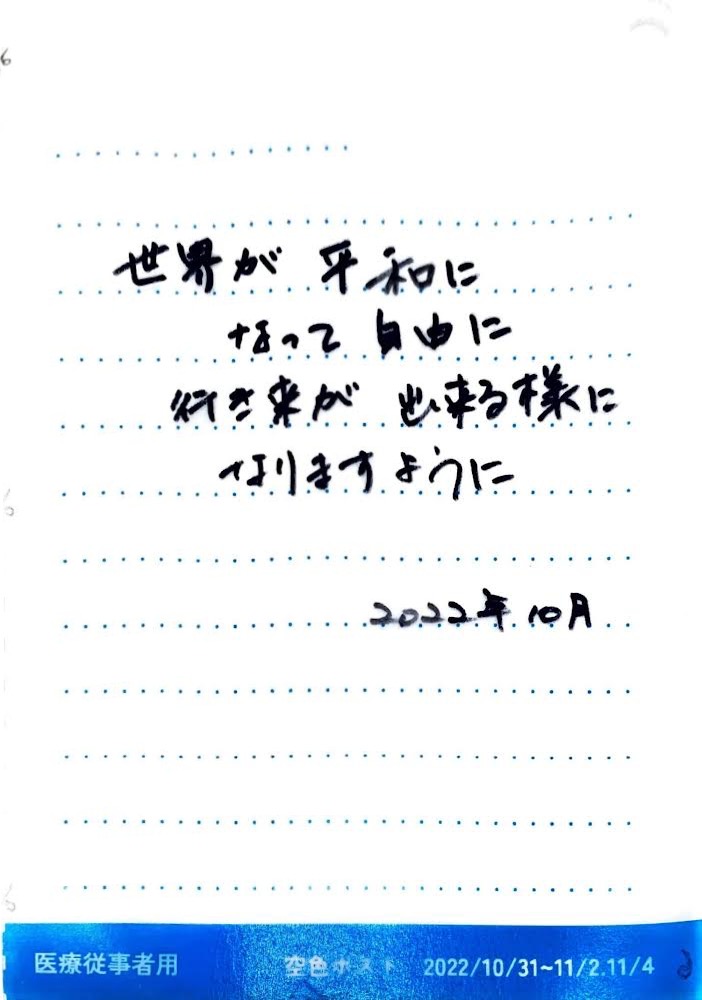 世界が 平和に
なって 自由に
行き来が 出来る様に
なりますように
2022年10月
医療従事者用 空色ポスト 2022/10/31~11/2.11/4